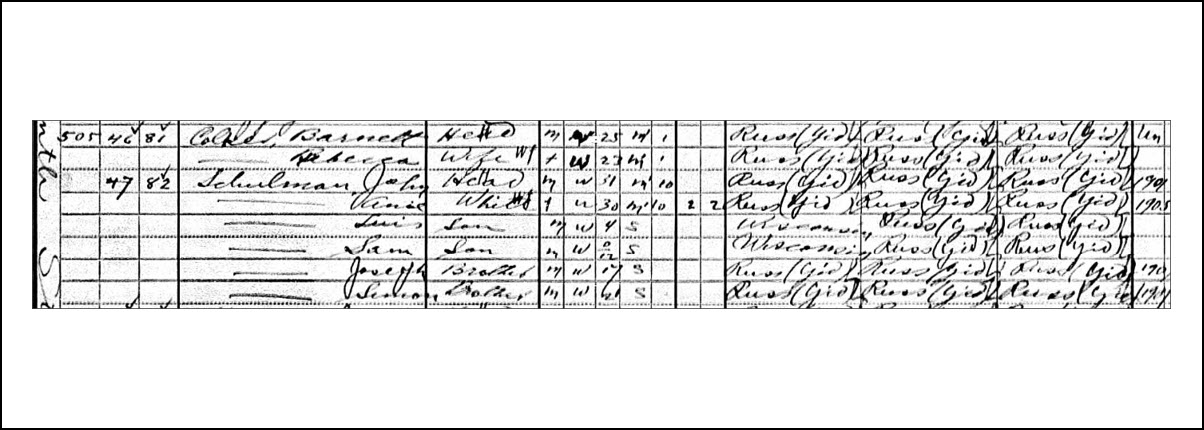 505 46 81 Barnett Head m w 25 m 1 Russ (Yid) Russ (Yid) Russ (Yid) Un
Rebecca Wife f w 23 m 1 Russ (Yid) Russ (Yid) Russ (Yid)
47 82 Schulman, John Head m w 31 m 10 Russ (Yid) Russ (Yid) Russ (Yid)
f w 30 m 10 2 2 Russ (Yid) Russ (Yid) Russ (Yid) 1905
Luis Son m w 4 S Wisconsin Russ (Yid) Russ (Yid)
Sam Son m w S Wisconsin Russ (Yid) Russ (Yid)
Joseph Brother m w 17 S Russ (Yid) Russ (Yid) Russ (Yid)
Simon Brother m w 21 S Russ (Yid) Russ (Yid) Russ (Yid)